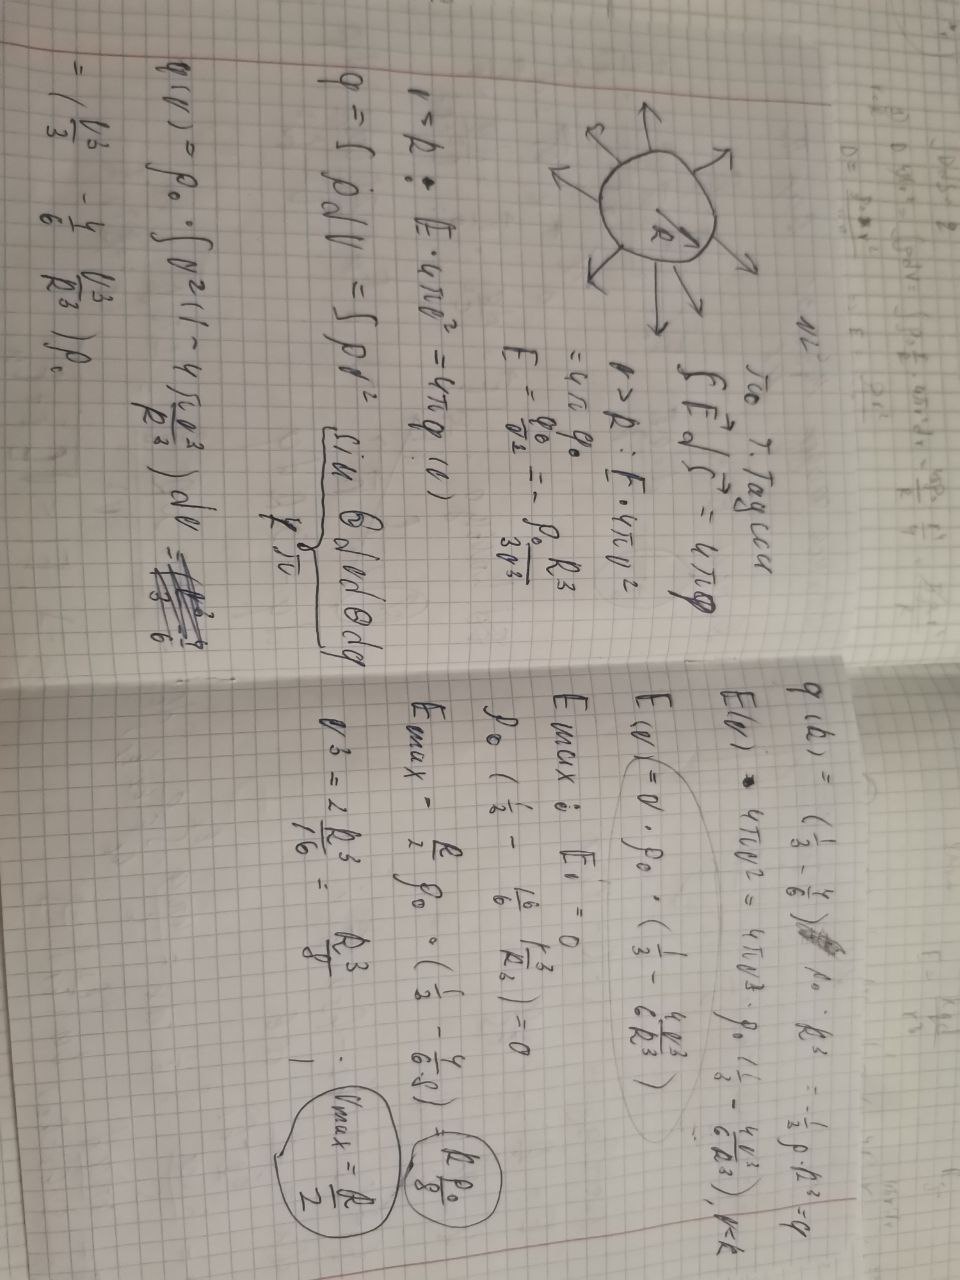 N2
По т. Гаусса
∮ E⃗ d S⃗ = 4πq
r > R : E · 4πr²
= 4π q₀
E = q₀/r² = - ρ₀ R³/3r³
r < R : E · 4πr² = 4πq(r)
q = ∫ ρdV = ∫ ρr² sin θ dr dθ dφ
4π
q(r) = ρ₀ · ∫ r²(1 - 4πr³/R³) dr =
= (r³/3 - 4/6 r³/R³) ρ₀
q(R) = (1/3 - 4/6) ρ₀ · R³ = -1/3 ρ · R³ = q
E(r) · 4πr² = 4πr³ · ρ₀ (1/3 - 4r³/6R³), r<R
E(r) = r · ρ₀ · (1/3 - 4r³/6R³)
E max : E' = 0
ρ₀ (1/3 - 16/6 r³/R³) = 0
E max = R/2 ρ₀ · (1/3 - 4/6·8) = Rρ₀/8
r³ = 2R³/16 = R³/8
r max = R/2
R